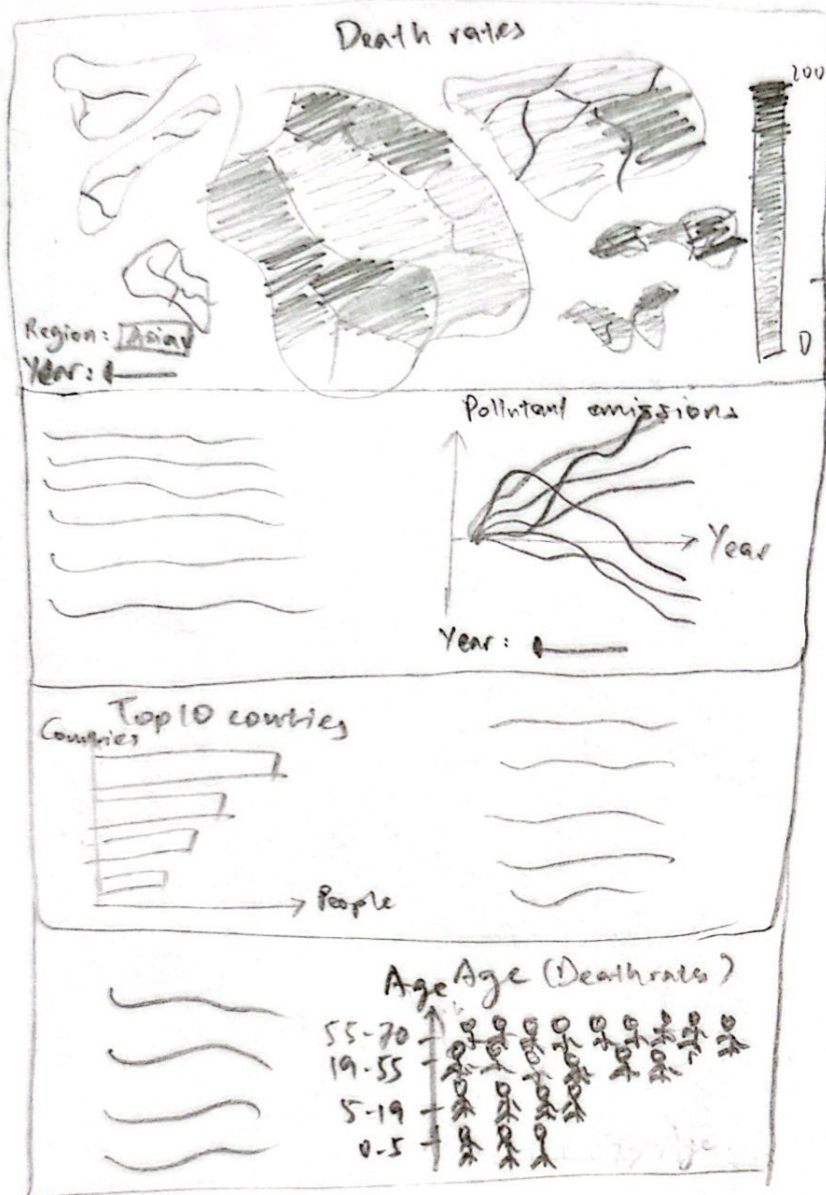 Death rates
200
0
Region: Asian
Year:
Pollutant emissions
Year
Year:
Top10 countries
Countries
People
Age Age (Death rates)
55-70
19-55
5-19
0-5